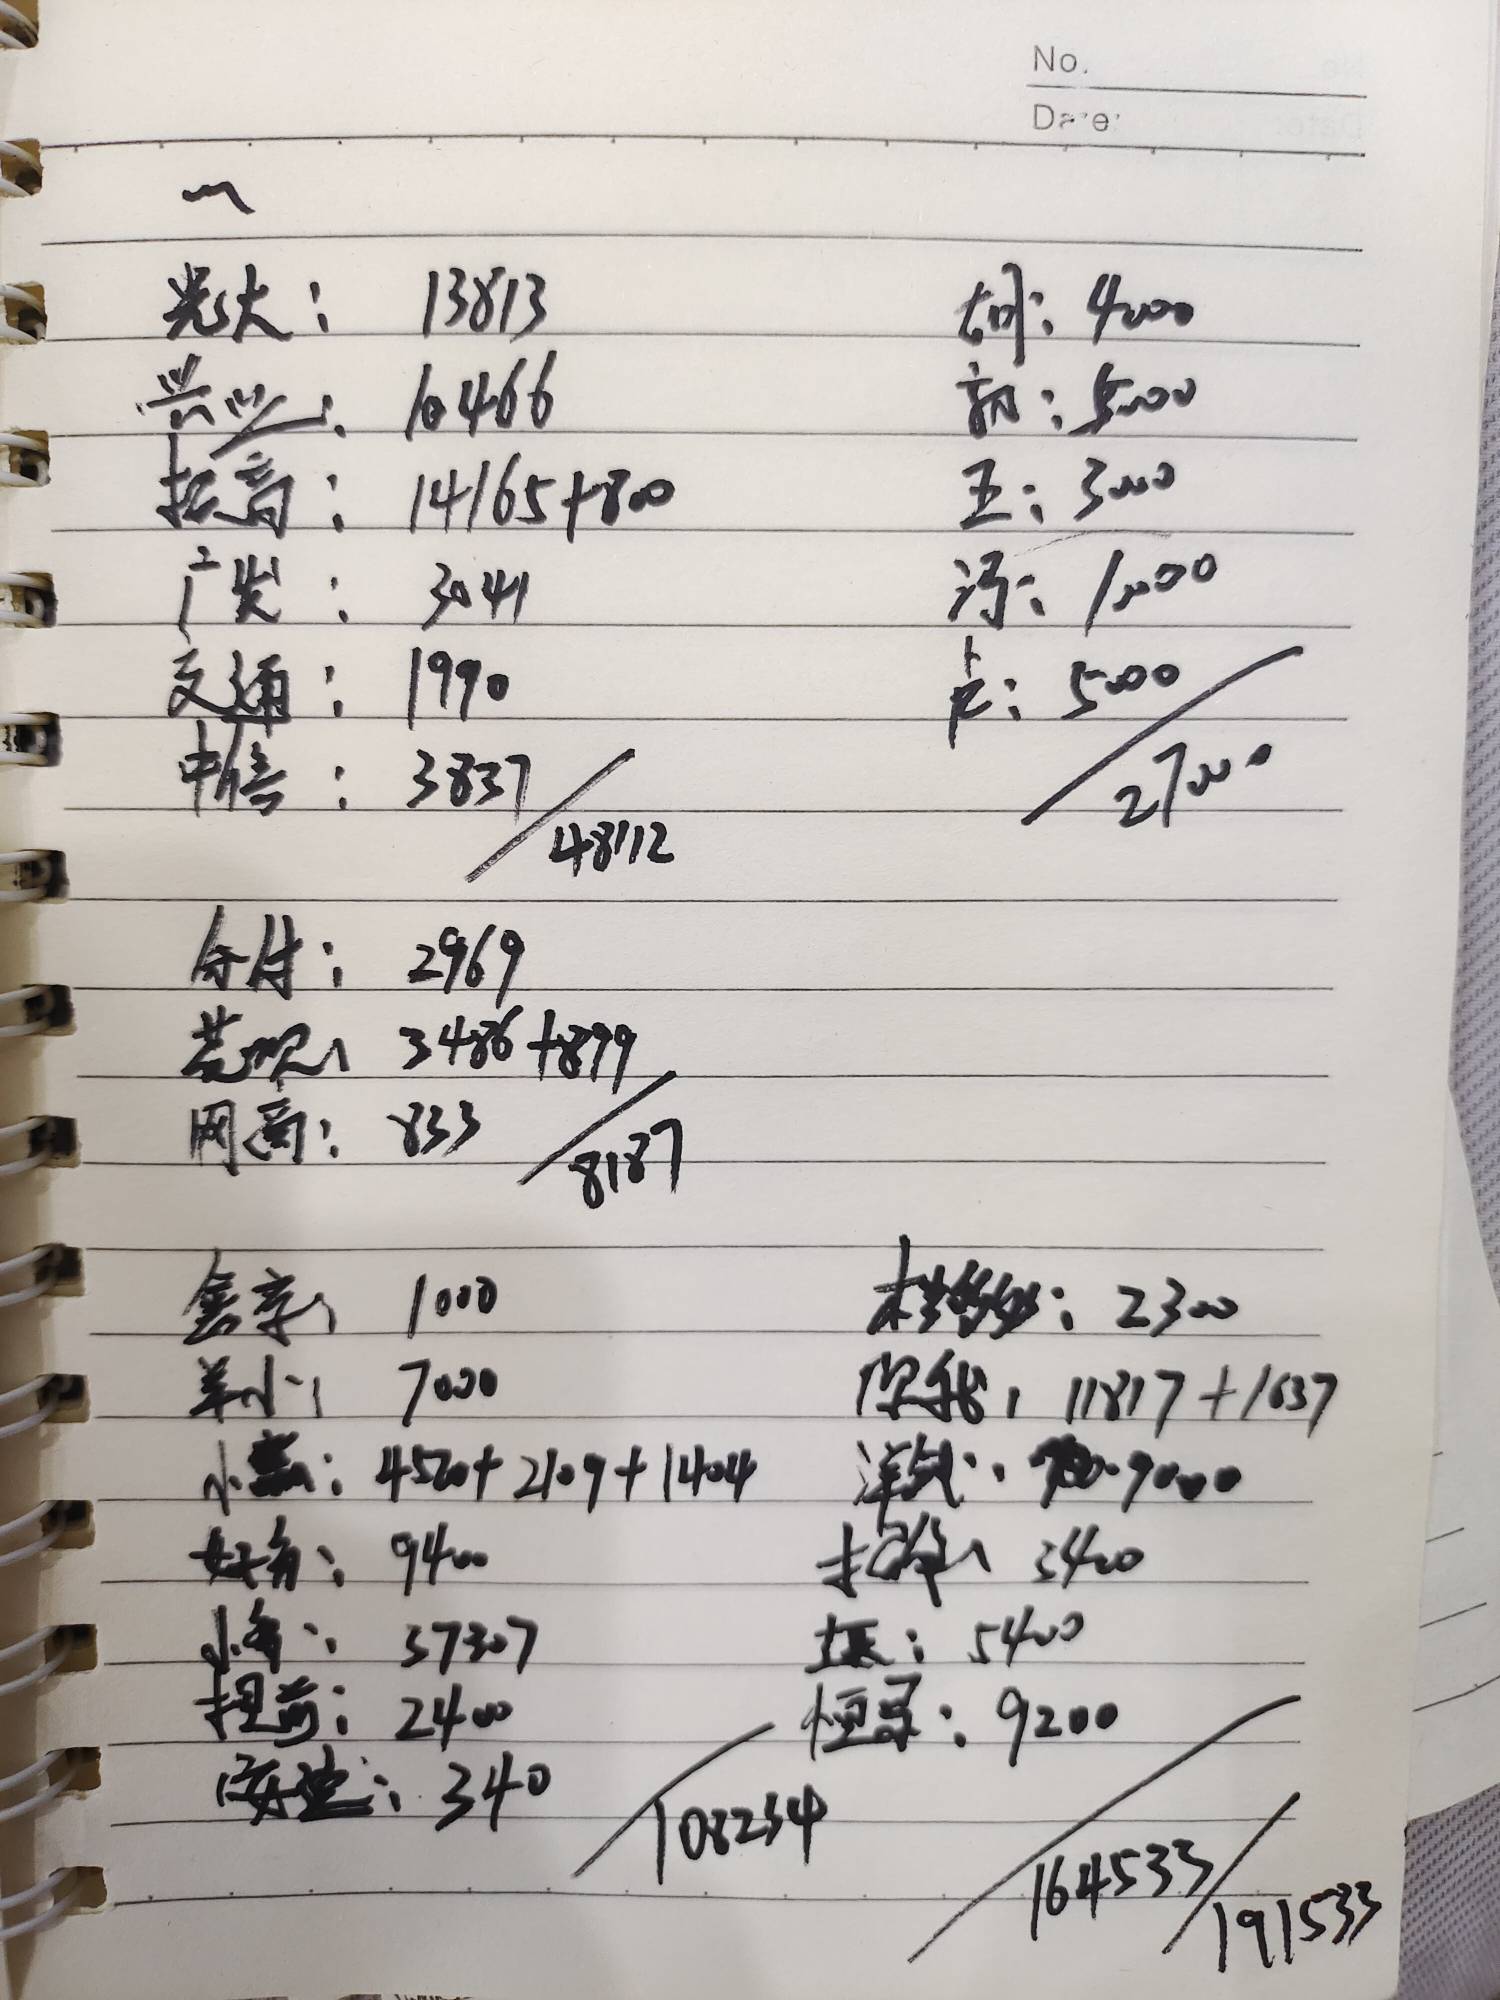 No.
Date:
一
光大: 13813
兴业: 10466
招商: 14165+800
广发: 3041
交通: 1990
中信: 3837
48112
胡: 4000
郭: 5000
王: 3000
冯: 10000
卢: 5000
27000
分付: 2969
3486+899
网商: 833
8187
1000
羊小: 7000
小: 4520+2109+1404
好: 9400
小: 37307
2400
安逸: 340
108234
2300
你我: 11817+1637
洋钱: 9000
招: 3400
5400
恒: 9200
164533
191533